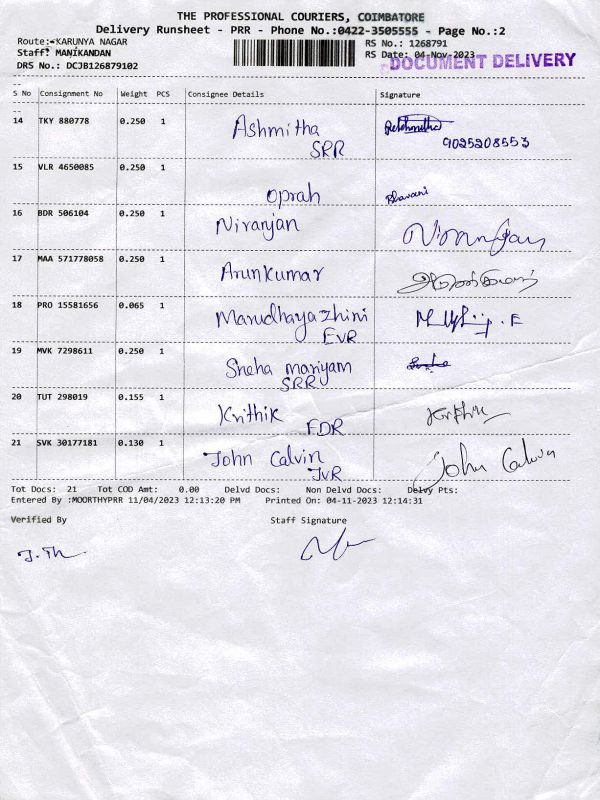 THE PROFESSIONAL COURIERS, COIMBATORE
Delivery Runsheet - PRR - Phone No.:0422-3505555 - Page No.:2
Route:-KARUNYA NAGAR
RS No.: 1268791
Staff: MANIKANDAN
RS Date: 04-Nov-2023
DRS No.: DCJB126879102
DOCUMENT DELIVERY
S No Consignment No Weight PCS Consignee Details Signature
14 TKY 880778 0.250 1 Ashmitha
SRR 9025208553
15 VLR 4650085 0.250 1
Oprah Bhavani
16 BDR 506104 0.250 1 Niranjan Niranjan
17 MAA 571778058 0.250 1 Arunkumar அருண்குமார்
18 PRO 15581656 0.065 1 Marudhayazhini
EVR
19 MVK 7298611 0.250 1 Sneha mariyam
SRR
20 TUT 298019 0.155 1 Krithik Krithik
FDR
21 SVK 30177181 0.130 1 John Calvin John Calvin
JVR
Tot Docs: 21 Tot COD Amt: 0.00 Delvd Docs: Non Delvd Docs: Delvy Pts:
Entered By :MOORTHYPRR 11/04/2023 12:13:20 PM Printed On: 04-11-2023 12:14:31
Verified By Staff Signature